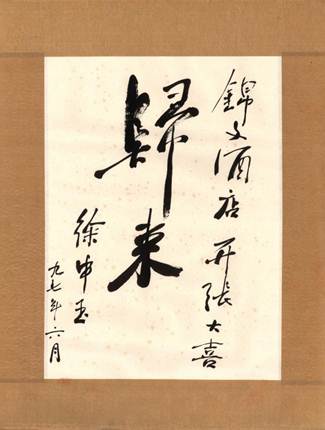 錦文酒店开張大喜
歸来
徐中玉
九七年六月